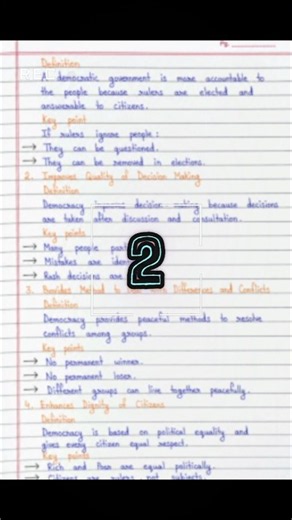 Definition
A democratic government is more accountable to
the people because rulers are elected and
answerable to citizens.
Key point
If rulers ignore people:
→ They can be questioned.
→ They can be removed in elections.
2. Improves Quality of Decision Making
Definition
Democracy improves decision making because decisions
are taken after discussion and consultation.
Key points
→ Many people
→ Mistakes are
→ Rash decisions are
2
3. Provides Method to Differences and Conflicts
Definition
Democracy provides peaceful methods to resolve
conflicts among groups.
Key points
→ No permanent winner.
→ No permanent loser.
→ Different groups can live together peacefully.
4. Enhances Dignity of Citizens
Definition
Democracy is based on political equality and
gives every citizen equal respect.
Key points
→ Rich and Poor are equal politically.
→ Citizens are rulers not subjects.